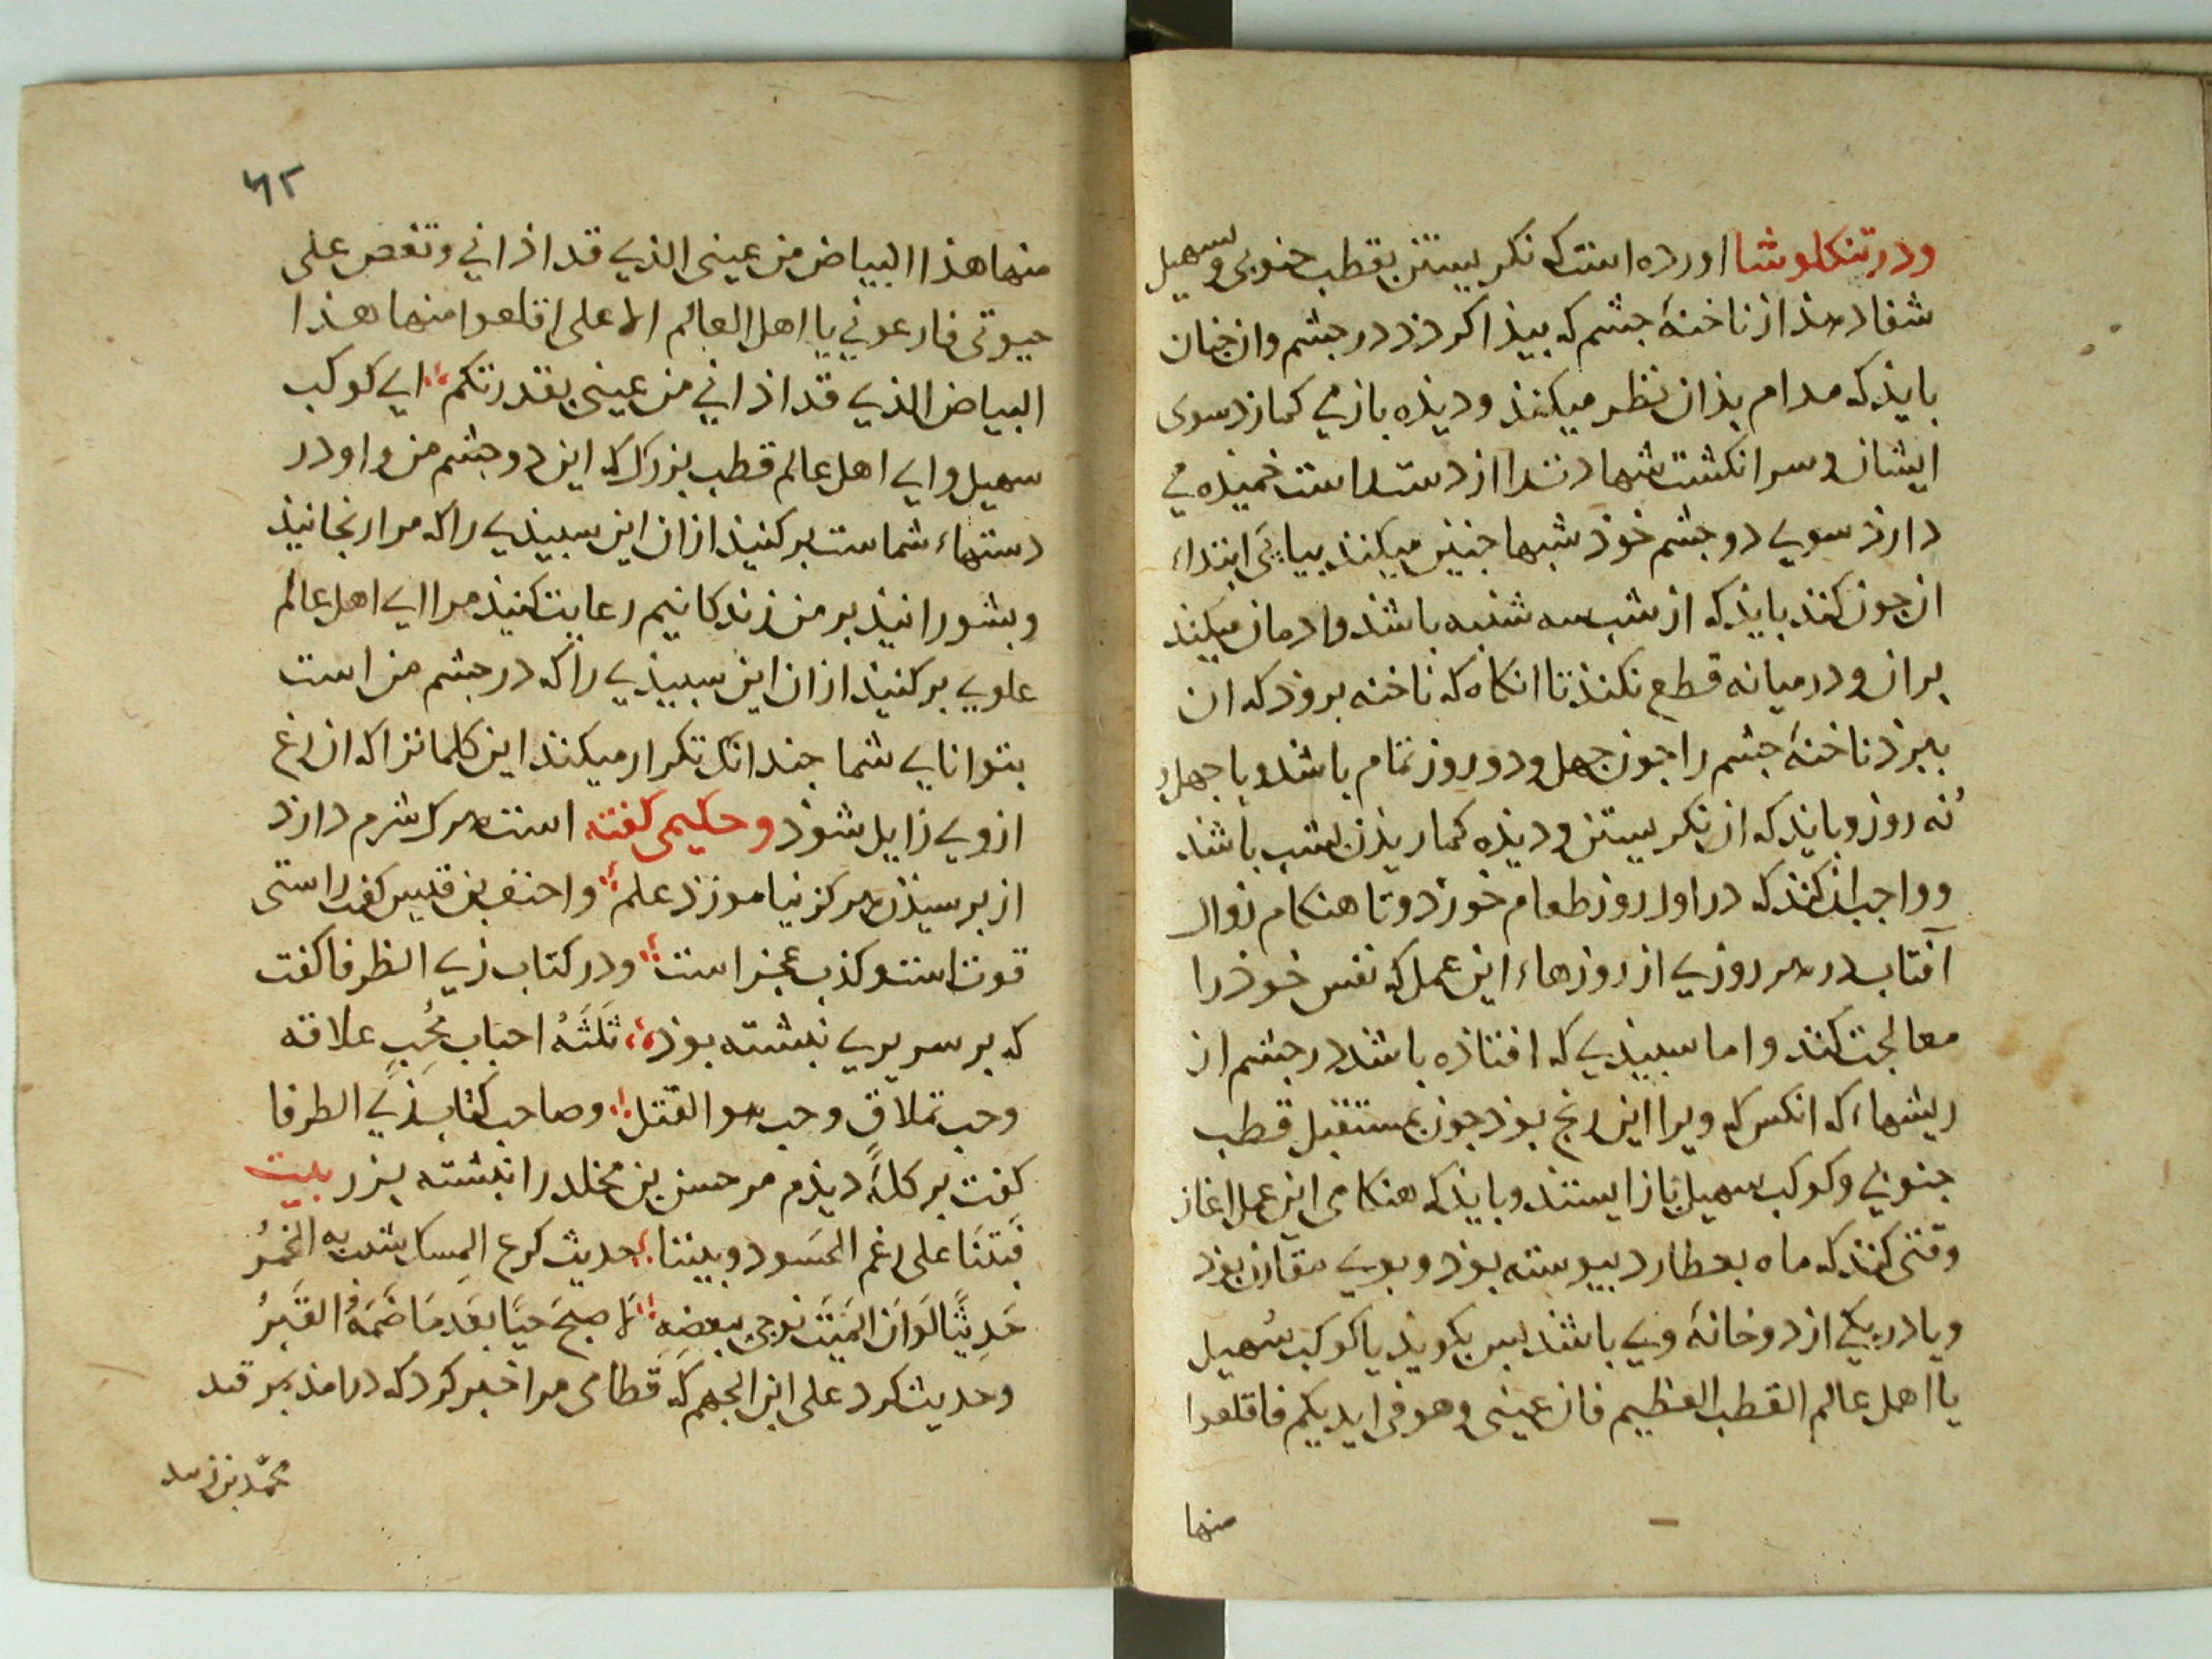 ودر تنکلوشا اورده است که نکریستن بقطب جنوبی وسهیل
شفا دهذ از ناخنهٔ جشم که بیذا کردذ در جشم وان جنان
بایذ که مدام بذان نظر میکنذ ودیذه بازمی کمارذ سوی
ایشان وسر انکشت شهادت را از دست راست خمیذه می
دارذ سوي دو جشم خوذ شبها جنین میکنذ بیابی ابتداء
ان جون کنذ بایذ که از شب سه شنبه باشذ وادمان میکنذ
بران ودر میانه قطع نکنذ تا انکاه که ناخنه بروذ که ان
ببرذ ناخنهٔ جشم را جون جهل ودو روز تمام باشذ ویا جهل و
نه روز وبایذ که ان نکریستن ودیذه کماریذن بشب باشذ
وواجب ان کنذ که در اول روز طعام خورذ وتا هنکام زوال
آفتاب در هر روزي از روزهاء این عمل که نفس خوذ را
معالجت کنذ واما سبیذي که افتاذه باشذ در جشم از
ریشهاء که انکس که ویرا این رنج بوذ جون بمستقبل قطب
جنوبي وکوکب سهیل باز ایستذ وبایذ که هنکامی این عمل اغاز
وقتی کنذ که ماه بعطارد بیوسته بوذ وبوي مقارن بوذ
ویا در یکي از دو خانهٔ وي باشذ بس بکویذ یا کوکب سهیل
یا اهل عالم القطب العظیم فان عینی وهو في ایدیکم فاقلعوا
منها
٦٢
منها هذا البیاض من عینی الذي قد اذاني وتغص علی
حیوتی فارعوني یا اهل العالم الاعلی اقلعوا منها هذا
البیاض الذي قد اذاني من عینی بقدرتکم اي کوکب
سهیل واي اهل عالم قطب بزرک که این دو جشم من واو در
دستهاء شماست برکنیذ ازان این سبیذي را که مرا رنجانیذ
وبشورانیذ بر من زندکانیم رعایت کنیذ مرا اي اهل عالم
علوي برکنیذ ازان این سبیذي را که در جشم من است
بتوانایي شما جندانک تکرار میکنذ این کلماترا که ان رنج
ازوي زایل شوذ وحکیمی کفته است هرک شرم دارذ
از برسیذن هرکز نیاموزذ علم واحنف بن قیس کفت راستی
قوت است وکذب عجز است ودر کتاب زي الظرفا کفت
که بر سریري نبشته بوذ ثَلَثَهُ احباب محُب علاقه
وحب تملاق وحب هو القتل وصاحب کتاب زي الظرفا
کفت بر کلهٔ دیذم مر حسن بن مخلد را نبشته بزر بیت
فبتنا علی رغم الحسود وبیننا حدیث کرع المسک شیب به الخمرُ
حَدِیثًا لَوَان المَیت نوجی ببعضِهِ لاصبحَ حیًا بَعدَ مَا ضَمَهُ القَبرُ
وحدیث کرد علی ابن الجهم که قطامی مرا خبر کرد که درامذ بمرقد
محمّد بن زید